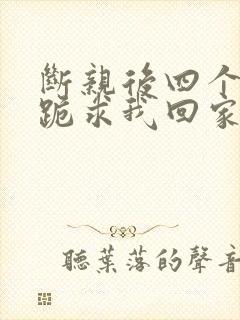 斷親後四个
跪求我回家
聽葉落的聲音